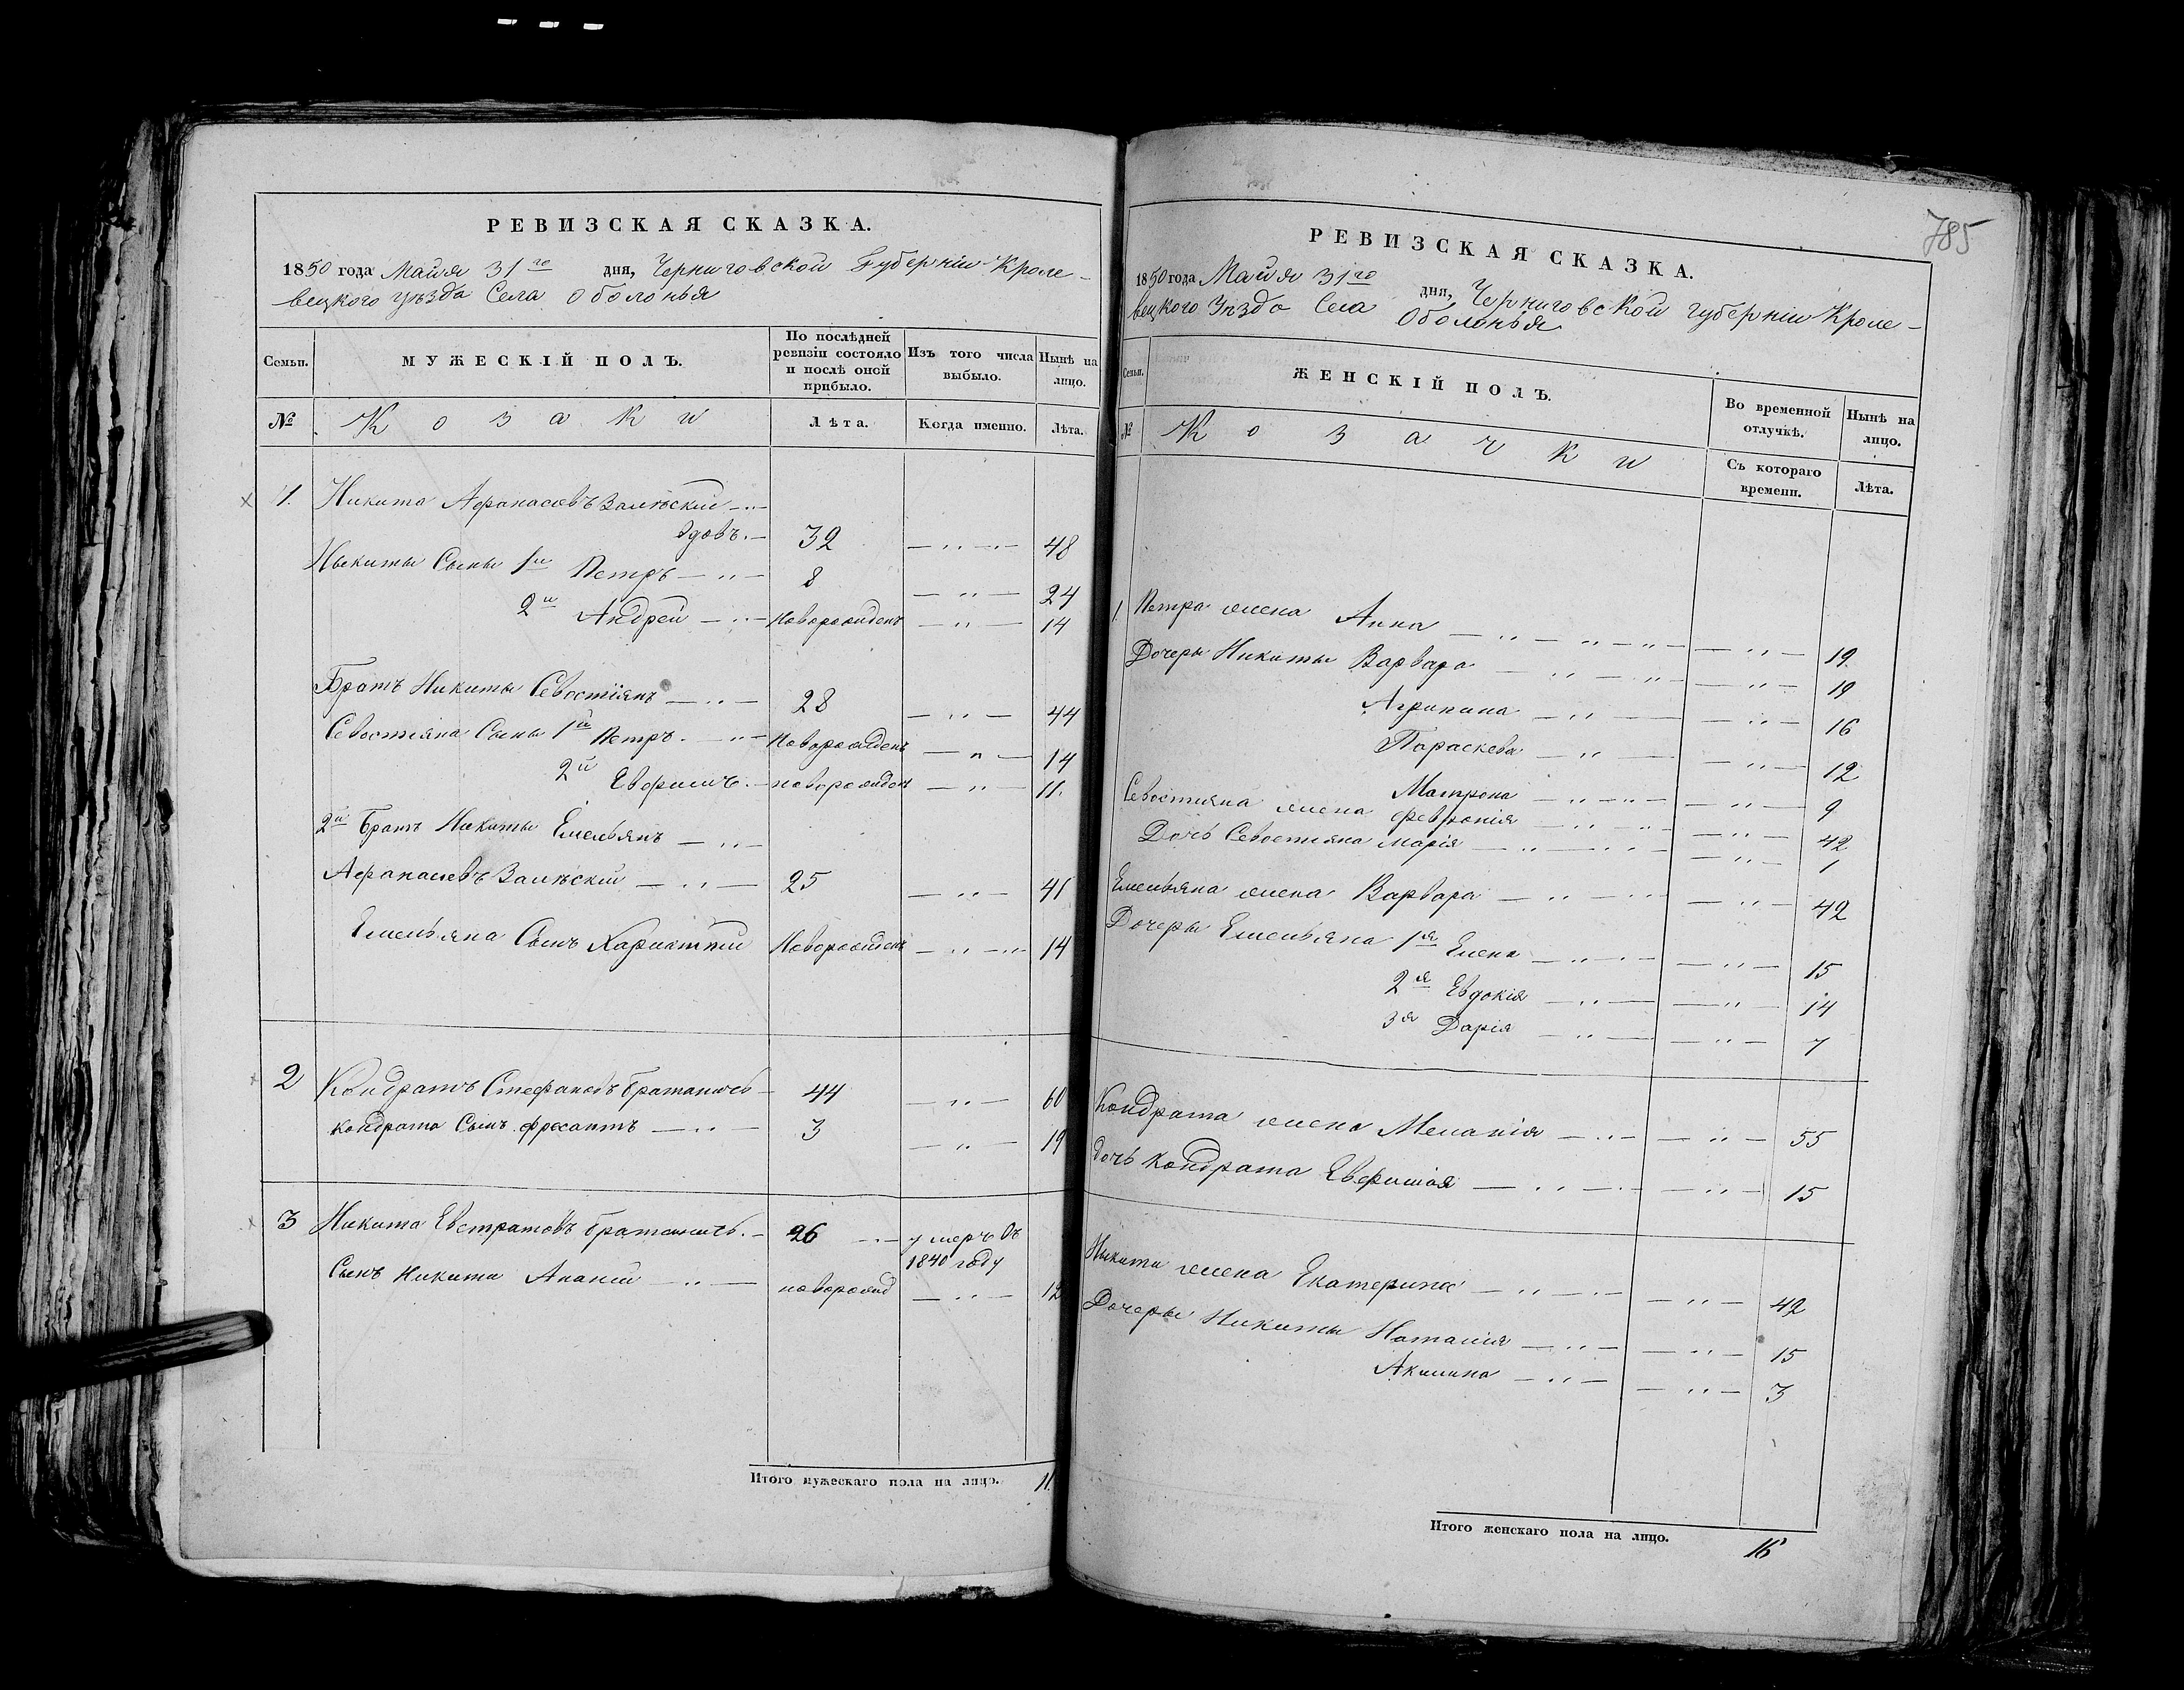 РЕВИЗСКАЯ СКАЗКА.
1850 года Майя 31го дня, Черниговской Губерніи Кроле-
вецкого уѣзда Села Оболонья
Семьи. МУЖЕСКІЙ ПОЛЪ. По послѣдней ревизіи состояло и послѣ оной прибыло. Изъ того числа выбыло. Нынѣ на лицо.
№ Козаки Лѣта. Когда именно. Лѣта.
1. Никита Афанасіевъ Залѣскій — „ —
Вдовъ. — 32 — „ — 48
Никиты Сыны 1й Петръ — „ — 8 — „ — 24
2й Андрей — „ — Новорожденъ — „ — 14
Братъ Никиты Севостіянъ — „ — 28 — „ — 44
Севостіяна Сыны 1й Петръ. — „ — Новорожденъ — „ — 14
2й Евфимъ. — новорожденъ — „ — 11.
2й Братъ Никиты Емельянъ — „ —
Афанасіевъ Залѣскій — „ — 25 — „ — 41
Емельяна Сынъ Хариттій Новорожденъ — „ — 14
2 Кондратъ Стефановъ — 44 — „ — 60
Кондрата Сынъ — „ — 3 — „ — 19
3 Никита Евстратовъ — 26 — умеръ въ
1840 году
Сынъ Никиты Ананій — „ — новорожд — „ — 12
Итого мужескаго пола на лицо. 11.
785
РЕВИЗСКАЯ СКАЗКА.
1850 года Майя 31го дня, Черниговской губерніи Кроле-
вецкого Уѣзда Села Оболонья
Семьи. ЖЕНСКІЙ ПОЛЪ. Во временной отлучкѣ. Нынѣ на лицо.
№ Козачки Съ котораго времени. Лѣта.
1. Петра жена Анна — „ — „ — „ — — „ — 19.
Дочеры Никиты Варвара — „ — „ — — „ — 19
Агрипина — „ — — „ — 16
Параскева — „ — — „ — 12
Матрона — „ — „ — — „ — 9
Севостияна жена Февронія — „ — „ — — „ — 42
Дочь Севостіяна Марія — „ — „ — — „ — 1
Емельяна жена Варвара — „ — „ — — „ — 42
Дочеры Емельяна 1я Елена — „ — — „ — 15
2я Евдокія — „ — — „ — 14
3я Дарія — „ — — „ — 7
Кондрата жена Меланія — „ — — „ — 55
Дочь Кондрата Евфимія — „ — — „ — 15
Никиты жена Екатерина — „ — — „ — 42
Дочеры Никиты Наталія — „ — — „ — 15
Акилина — „ — — „ — 3
Итого женскаго пола на лицо. 16